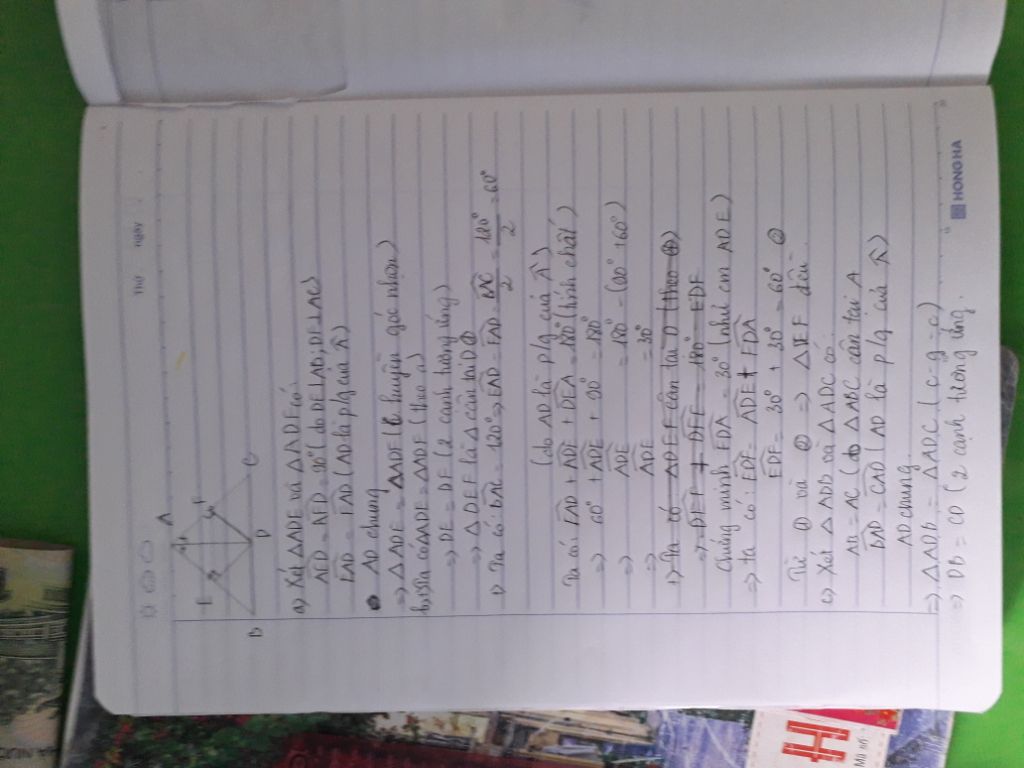 Thứ ngày
A
E
F
B
D
C
a) Xét △ADE và △ADF có:
AED = AFD = 90° (do DE⊥AB; DF⊥AC)
EAD = FAD (AD là p/g của A)
AD chung
=> △ADE = △ADF ( huyền góc nhọn)
b, Ta có △ADE = △ADF (theo a)
=> DE = DF (2 cạnh tương ứng)
=> △DEF là △ cân tại D ①
Ta có: BAC = 120° => EAD = FAD = BAC/2 = 120°/2 = 60°
(do AD là p/g của A)
Ta có: EAD + ADE + DEA = 180° (tính chất)
=> 60° + ADE + 90° = 180°
=> ADE = 180° - (90° + 60°)
=> ADE = 30°
Ta có △DEF cân tại D (theo ①)
=> DEF + DFE = 180° - EDF
Chứng minh FDA = 30° (như cm ADE)
=> ta có: EDF = ADE + FDA
EDF = 30° + 30° = 60° ②
Từ ① và ② => △DEF đều
c) Xét △ADB và △ADC có:
AB = AC (do △ABC cân tại A
BAD = CAD (AD là p/g của A)
AD chung
=> △ADB = △ADC (c-g-c)
=> DB = CD (2 cạnh tương ứng.
HONG HA
H
Mã số